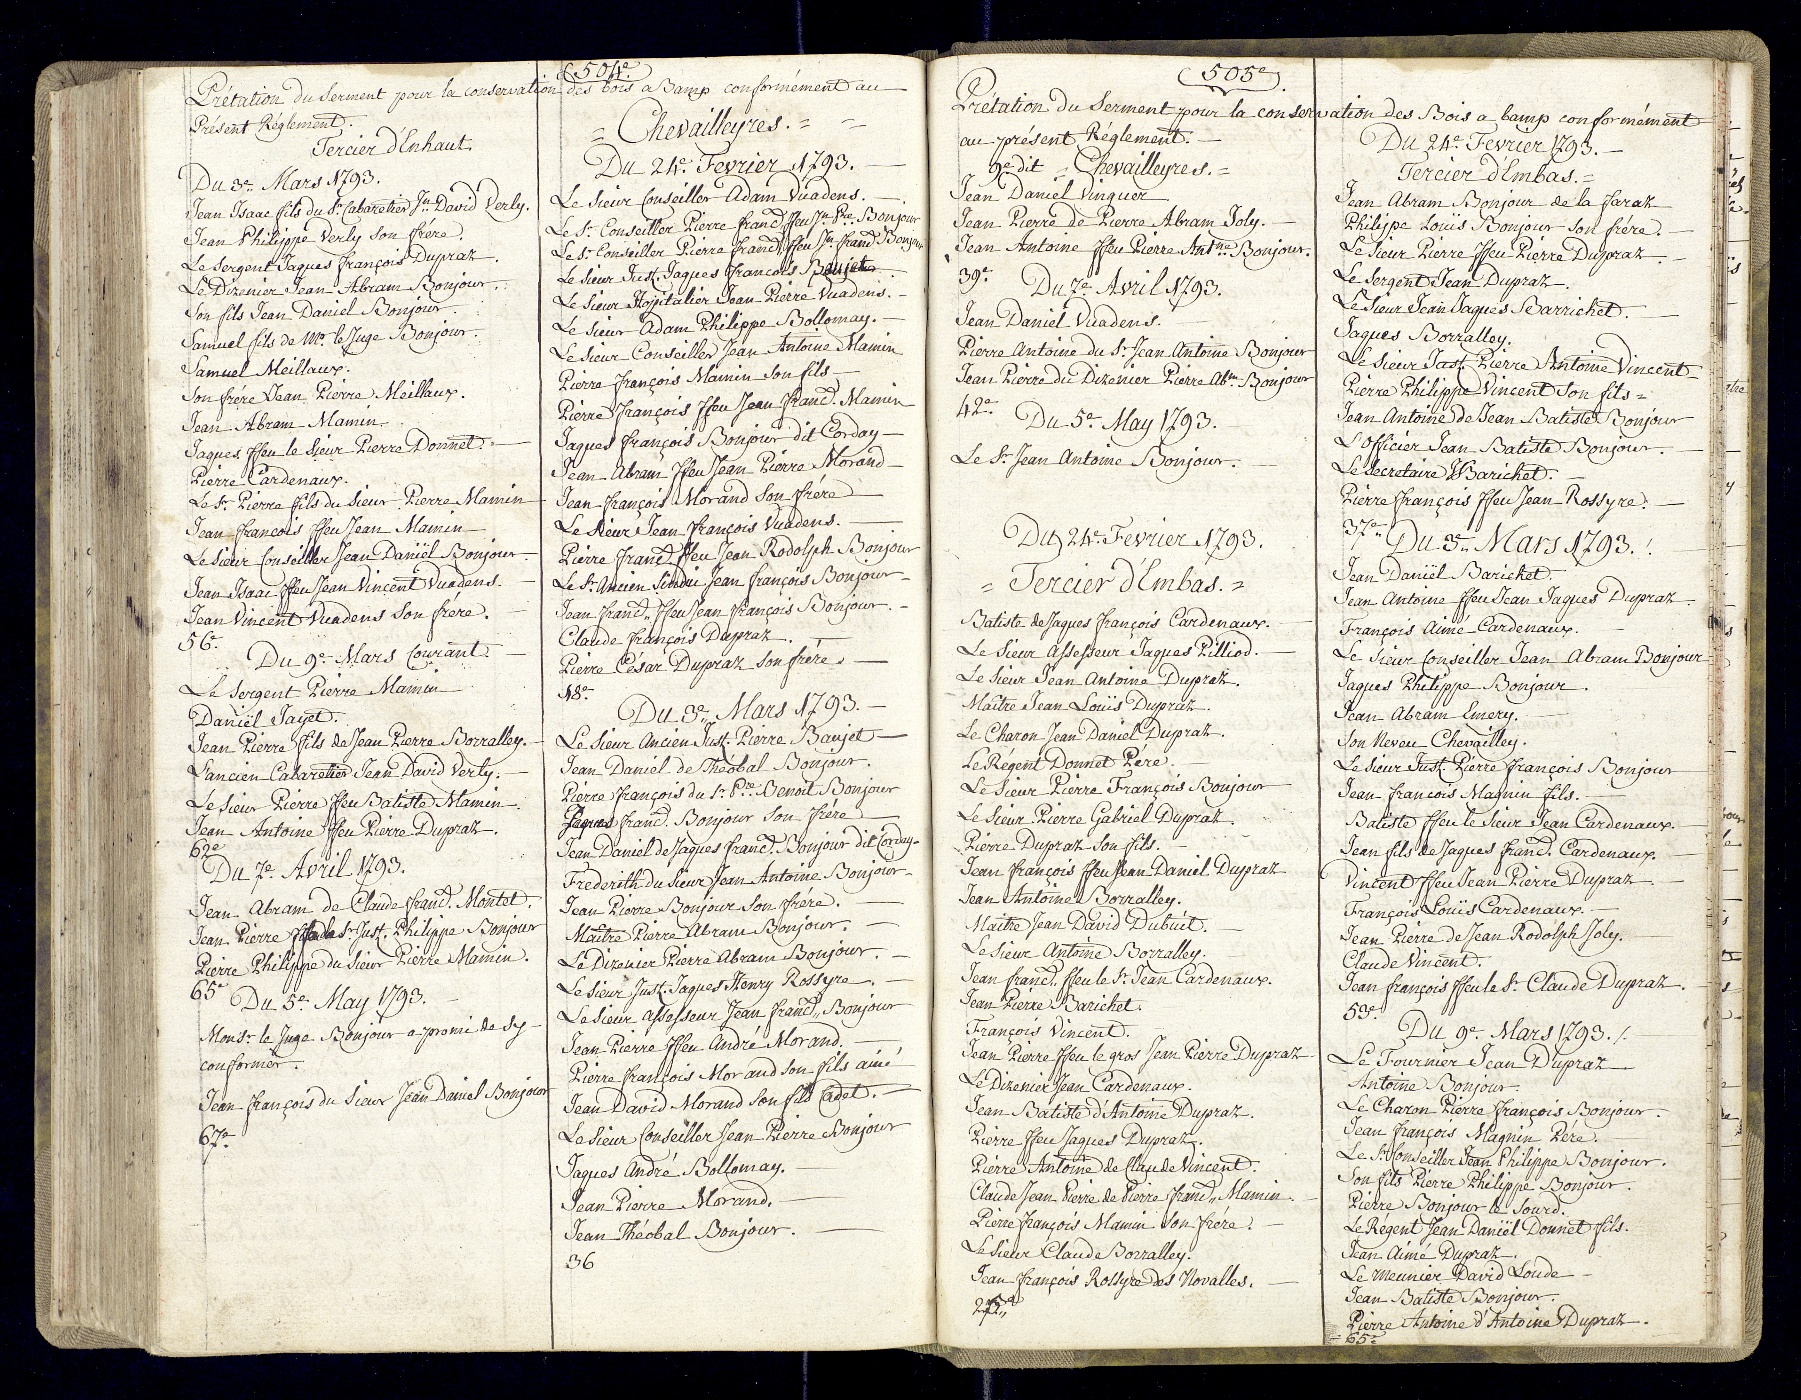 504e.
Prétation du Serment pour la conservation des bois a Bamp conformément au
Présent Réglement.
Tercier d'Enhaut
Du 3e. Mars 1793.
Jean Isaac fils du Sr. Cabaretier Jn. David Verly.
Jean Philippe Verly son frére.
Le Sergent Jaques françois Dupraz.
Le Dizenier Jean Abram Bonjour.
Son fils Jean Daniel Bonjour.
Samuel fils de Mr. le Juge Bonjour.
Samuel Meillaux.
Son frére Jean Pierre Meillaux.
Jean Abram Mamin.
Jaques ffeu le Sieur Pierre Donnet.
Pierre Cardenaux.
Le Sr. Pierre fils du Sieur Pierre Mamin
Jean francois ffeu Jean Mamin
Le Sieur Conseiller Jean Daniël Bonjour
Jean Isaac ffeu Jean Vincent Vuadens.
Jean Vincent Vuadens Son frére.
56e.
Du 9e. Mars Courant.
Le Sergent Pierre Mamin
Daniël Jayet.
Jean Pierre fils de Jean Pierre Borralley.
L'ancien Cabaretier Jean David Verly.
Le Sieur Pierre ffeu Batiste Mamin.
Jean Antoine ffeu Pierre Dupraz.
62e
Du 7e. Avril 1793.
Jean Abram de Claude francs. Montet.
Jean Pierre Sr. Just. Philippe Bonjour
Pierre Philippe du Sieur Pierre Mamin.
65e
Du 5e. May 1793.
Monsr. le Juge Bonjour a promi de Sy
conformer.
Jean françois du Sieur Jean Daniel Bonjour
67e.
= Chevailleyres. =
Du 24e. Fevrier 1793.
Le Sieur Conseiller Adam Vuadens.
Le Sr. Conseiller Pierre francs. ffeu Jn Pre. Bonjour
Le Sr. Conseiller Pierre francs. ffeu Jn. francs Bonjour
Le Sieur Just. Jaques francois
Le Sieur Hospitalier Jean Pierre Vuadens.
Le Sieur Adam Philippe Bollomay.
Le Sieur Conseiller Jean Antoine Mamin
Pierre françois Mamin son fils
Pierre françois ffeu Jean francs. Mamin
Jaques françois Bonjour dit Corday
Jean Abram ffeu Jean Pierre Morand
Jean françois Morand Son frére
Le Sieur Jean françois Vuadens.
Pierre francs. ffeu Jean Rodolph Bonjour
Le Sr. Ancien Sindic Jean françois Bonjour
Jean francs. ffeu Jean françois Bonjour.
Claude françois Dupraz.
Pierre César Dupraz son frére.
18e.
Du 3e. Mars 1793.
Le Sieur Ancien Just. Pierre Baujet
Jean Daniel de Théobal Bonjour.
Pierre françois du Sr. Pre. Benoit Bonjour
Jaques francs. Bonjour Son frére
Jean Daniel de Jaques francs. Bonjour dit Corday
Frederith du Sieur Jean Antoine Bonjour
Jean Pierre Bonjour Son frére.
Maître Pierre Abram Bonjour.
Le Dizenier Pierre Abram Bonjour.
Le Sieur Just. Jaques Henry Rossyre.
Le Sieur Assesseur Jean francs. Bonjour
Jean Pierre ffeu André Morand.
Pierre françois Morand son fils ainé
Jean David Morand Son fils Cadet.
Le Sieur Conseiller Jean Pierre Bonjour
Jaques André Bollomay.
Jean Pierre Morand.
Jean Théobal Bonjour.
36
505e
Prétation du Serment pour la conservation des Bois a bamp conformément
au présent Réglement.
9e. dit = Chevailleyres. =
Jean Daniel Vinguer
Jean Pierre de Pierre Abram Joly.
Jean Antoine ffeu Pierre Antne. Bonjour.
39e
Du 7e. Avril 1793.
Jean Daniel Vuadens.
Pierre Antoine du Sr. Jean Antoine Bonjour
Jean Pierre du Dizenier Pierre Abm. Bonjour
42e.
Du 5e. May 1793.
Le Sr. Jean Antoine Bonjour.
Du 24e. Fevrier 1793.
= Tercier d'Embas. =
Batiste de Jaques françois Cardenaux.
Le Sieur Assesseur Jaques Pilliod.
Le Sieur Jean Antoine Dupraz.
Maître Jean Louïs Dupraz.
Le Charon Jean Daniel Dupraz.
Le Régent Donnet Pére.
Le Sieur Pierre François Bonjour
Le Sieur Pierre Gabriel Dupraz.
Pierre Dupraz son fils.
Jean françois ffeu Jean Daniel Dupraz
Jean Antoine Borralley.
Maître Jean David Dubuit.
Le Sieur Antoine Borralley.
Jean francs. ffeu le Sr. Jean Cardenaux.
Jean Pierre Barichet.
François Vincent.
Jean Pierre ffeu le gros Jean Pierre Dupraz
Le Dizenier Jean Cardenaux.
Jean Batiste d'Antoine Dupraz.
Pierre ffeu Jaques Dupraz.
Pierre Antoine de Claude Vincent.
Claude Jean Pierre de Pierre francs. Mamin
Pierre françois Mamin Son frére.
Le Sieur Claude Borralley.
Jean françois Rossyre des Novalles.
Du 24e. Fevrier 1793.
Tercier d'Embas. =
Jean Abram Bonjour de la faraz
Philippe Louïs Bonjour Son frére.
Le Sieur Pierre ffeu Pierre Dupraz.
Le Sergent Jean Dupraz.
Le Sieur Jean Jaques Barrichet.
Jaques Borralley.
Le Sieur Just. Pierre Antoine Vincent
Pierre Philippe Vincent Son fils =
Jean Antoine de Jean Batiste Bonjour
L'Officier Jean Batiste Bonjour.
Le Secretaire Barichet.
Pierre François ffeu Jean Rossyre.
37e
Du 3e. Mars 1793.
Jean Daniël Barichet.
Jean Antoine ffeu Jean Jaques Dupraz.
François Aimé Cardenaux.
Le Sieur Conseiller Jean Abram Bonjour
Jaques Philippe Bonjour.
Jean Abram Emery.
Son Neveu Chevailley.
Le Sieur Just. Pierre françois Bonjour
Jean francois Magnin fils.
Batiste ffeu le Sieur Jean Cardenaux.
Jean fils de Jaques francs. Cardenaux.
Vincent ffeu Jean Pierre Dupraz.
François Louïs Cardenaux.
Jean Pierre de Jean Rodolph Joly.
Claude Vincent.
Jean françois ffeu le Sr. Claude Dupraz.
53e.
Du 9e. Mars 1793.
Le Fournier Jean Dupraz
Antoine Bonjour.
Le Charon Pierre françois Bonjour.
Jean françois Magnin Pére.
Le Sr. Conseiller Jean Philippe Bonjour.
Son fils Pierre Philippe Bonjour.
Pierre Bonjour le Sourd.
Le Régent Jean Daniël Donnet fils.
Jean Aimé Dupraz.
Le Meunier David Loude
Jean Batiste Bonjour.
Pierre Antoine d'Antoine Dupraz.
65e